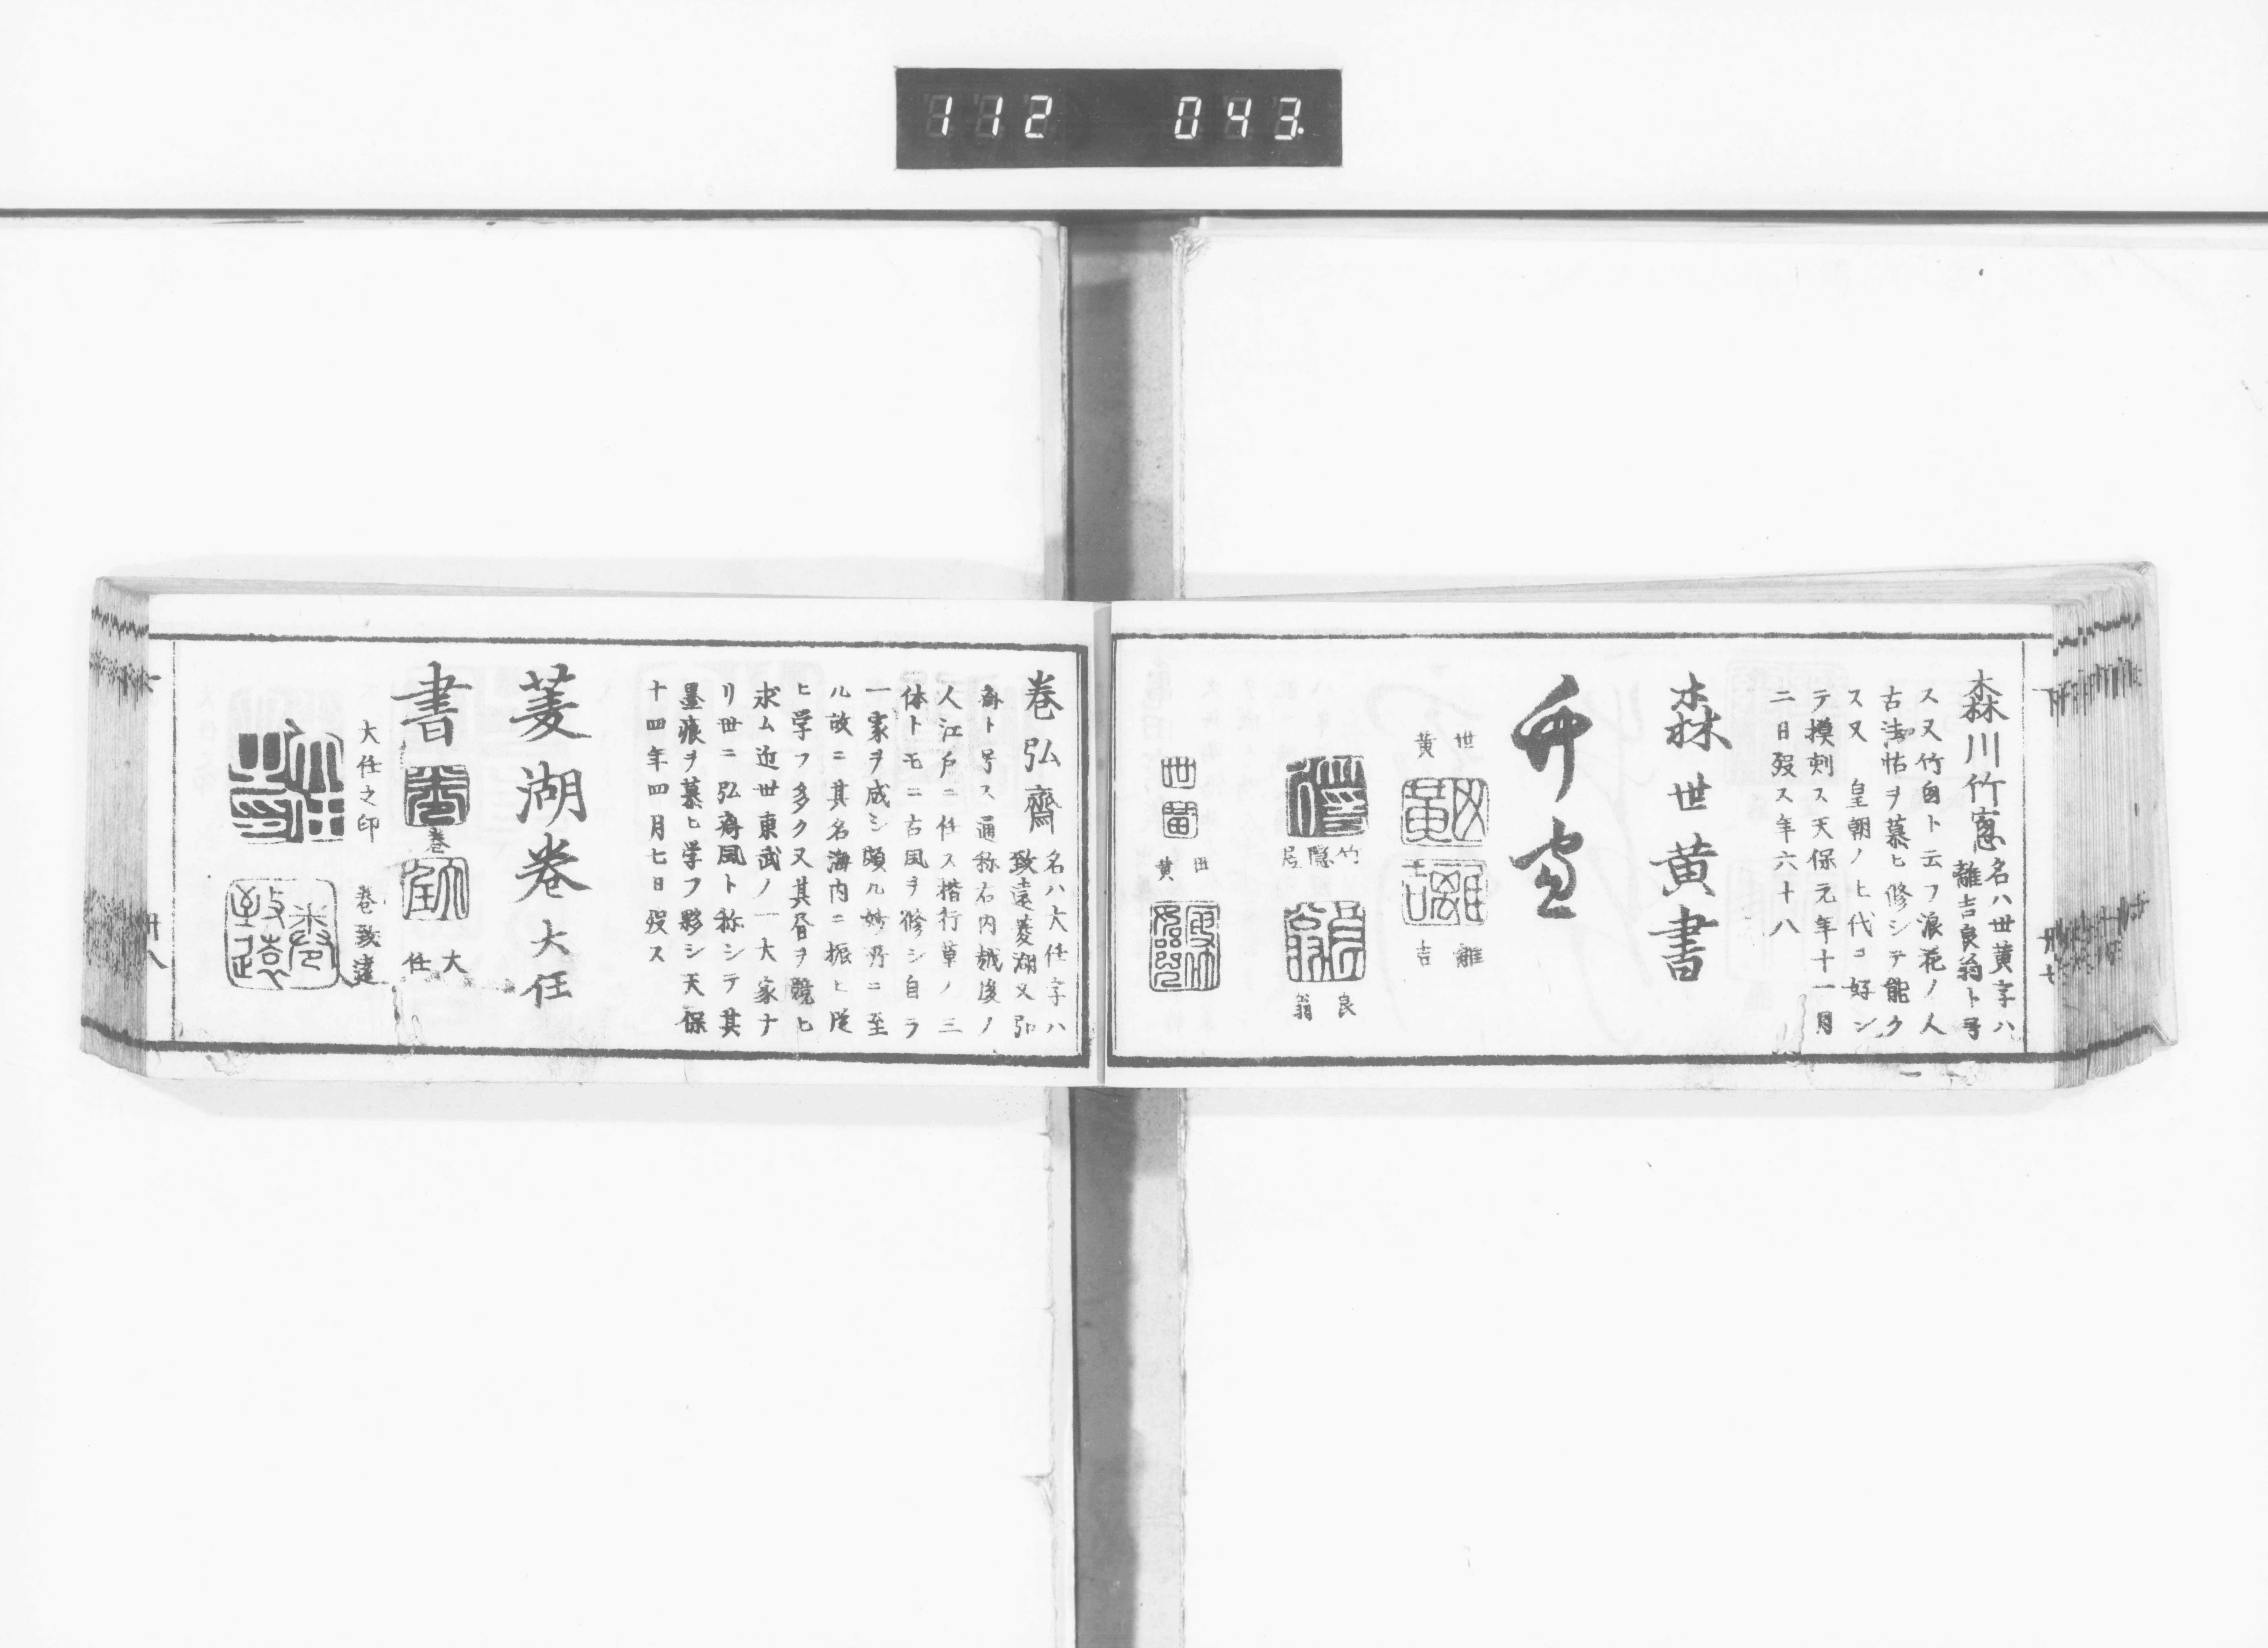 112 043
森川竹窓 名ハ世黄字ハ
離吉良翁ト号
ス又竹自ト云フ浪花ノ人
古法帖ヲ慕ヒ修シテ能ク
ス又 皇朝ノ上代ヲ好ン
テ摸刻ス天保元年十一月
二日歿ス年六十八
森世黄書
竹窓
世
黄
離
吉
竹
隠
居
良
翁
世
黄
卷弘齋 名ハ大任字ハ
致遠菱湖又弘
斎ト号ス通称右内越後ノ
人江戸ニ住ス楷行草ノ三
体トモニ古風ヲ修シ自ラ
一家ヲ成シ頗ル妙所ニ至
ル故ニ其名海内ニ振ヒ従
ヒ学フ多ク又其書ヲ競ヒ
求ム近世東武ノ一大家ナ
リ世ニ弘斎風ト称シテ其
墨痕ヲ慕ヒ学フ夥シ天保
十四年四月七日歿ス
菱湖卷大任
書
卷
大
任
大任之印
卷致遠